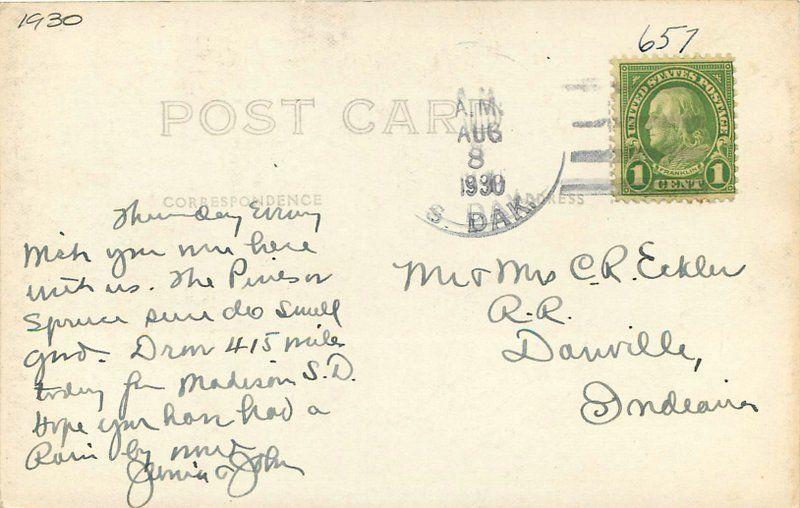 1930
657
UNITED STATES POSTAGE
FRANKLIN
1 CENT 1
POST CARD
A.M.
AUG
8
1930
S. DAK.
CORRESPONDENCE
ADDRESS
Thursday Evening
Wish you were here
with us. The Pines or
Spruce sure do smell
good. Drove 415 miles
today from Madison S.D.
Hope you have had a
Rain by now
& John
Mr & Mrs C.R. Eckler
R.R.
Danville,
Indeaina